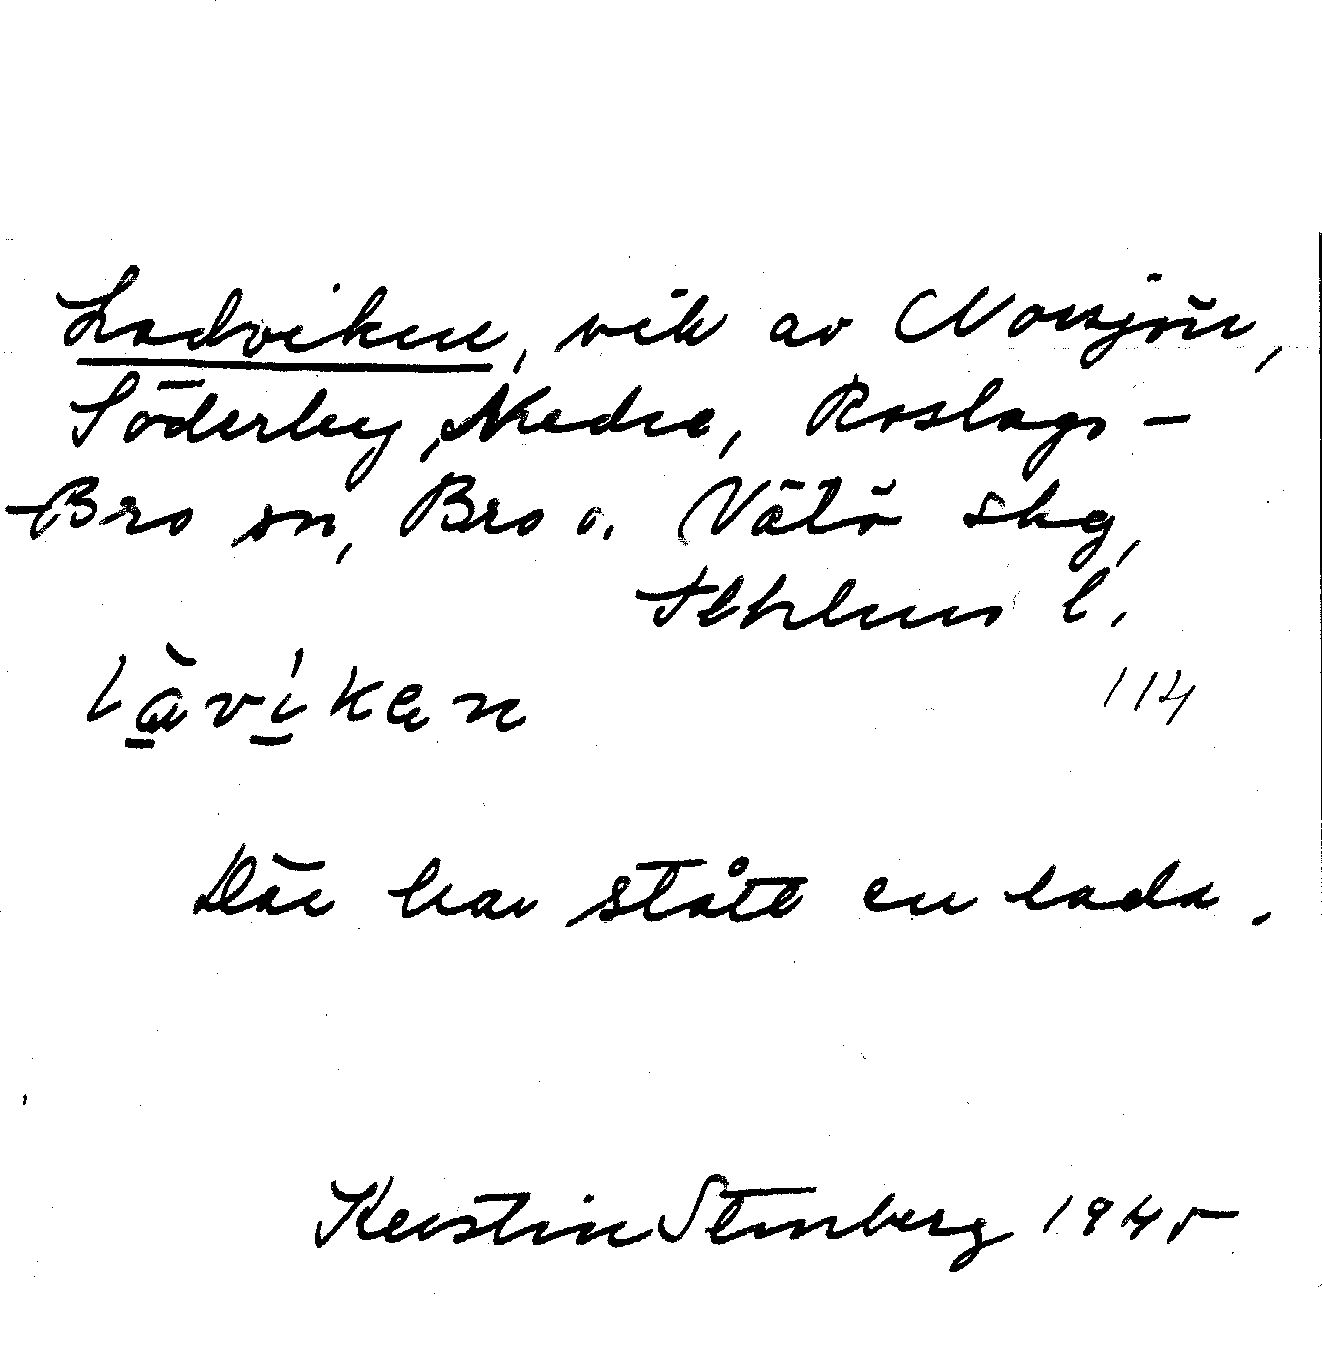 Ladviken, vik av Norsjön,
Söderby, Nedre, Roslags-
-Bro sn, Bro o. Vätö skg,
Sthlms l.
làvíken 114
Där har stått en lada.
Kerstin Stenberg 1945